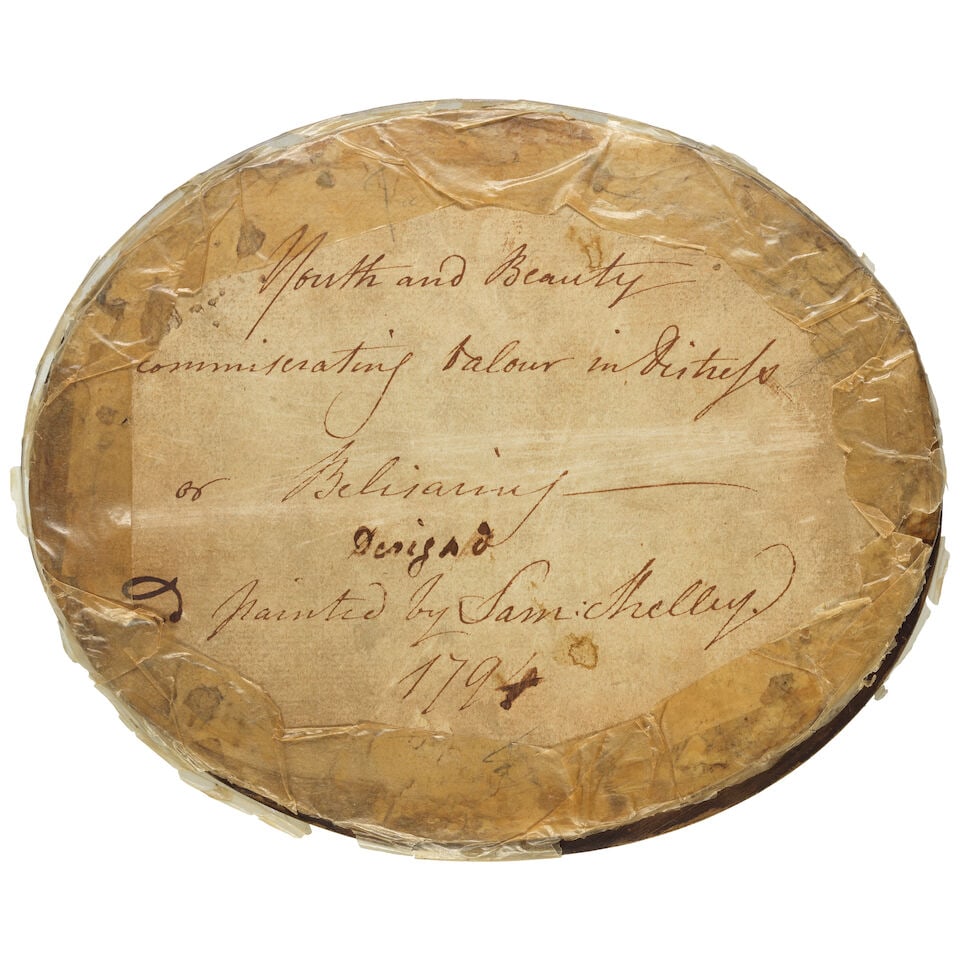 Youth and Beauty
commiserating Valour in Distress
or Belisarius
Design'd
& painted by Sam: Shelley.
1794